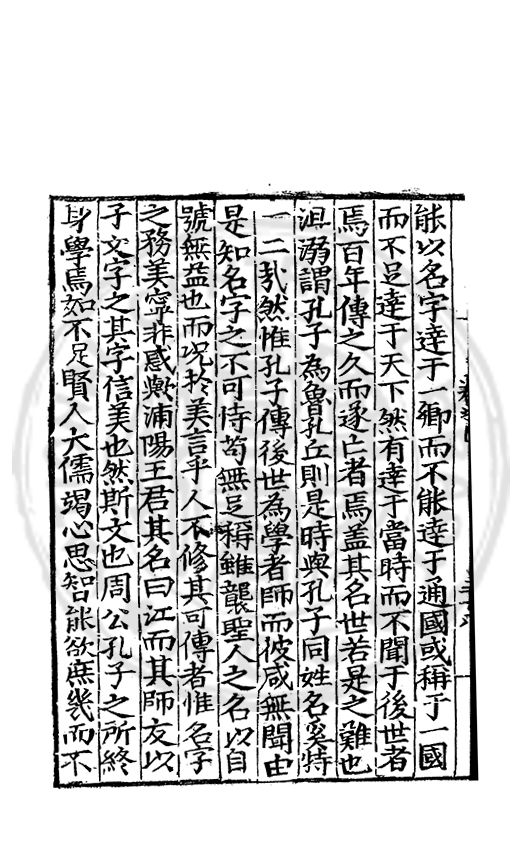 能以名字達于一鄉而不能達于通國或稱于一國
而不足達于天下然有達于當時而不聞于後世者
焉百年傳之久而遂亡者焉蓋其名世若是之難也
沮溺謂孔子為魯孔丘則是時與孔子同姓名奚特
一二哉然惟孔子傳後世為學者師而彼咸無聞由
是知名字之不可恃苟無足稱雖襲聖人之名以自
號無益也而况於美言乎人不修其可傳者惟名字
之務美寧非惑歟浦陽王君其名曰江而其師友以
子文字之其字信美也然斯文也周公孔子之所終
身學焉如不足賢人大儒竭心思智能欲庶幾而不